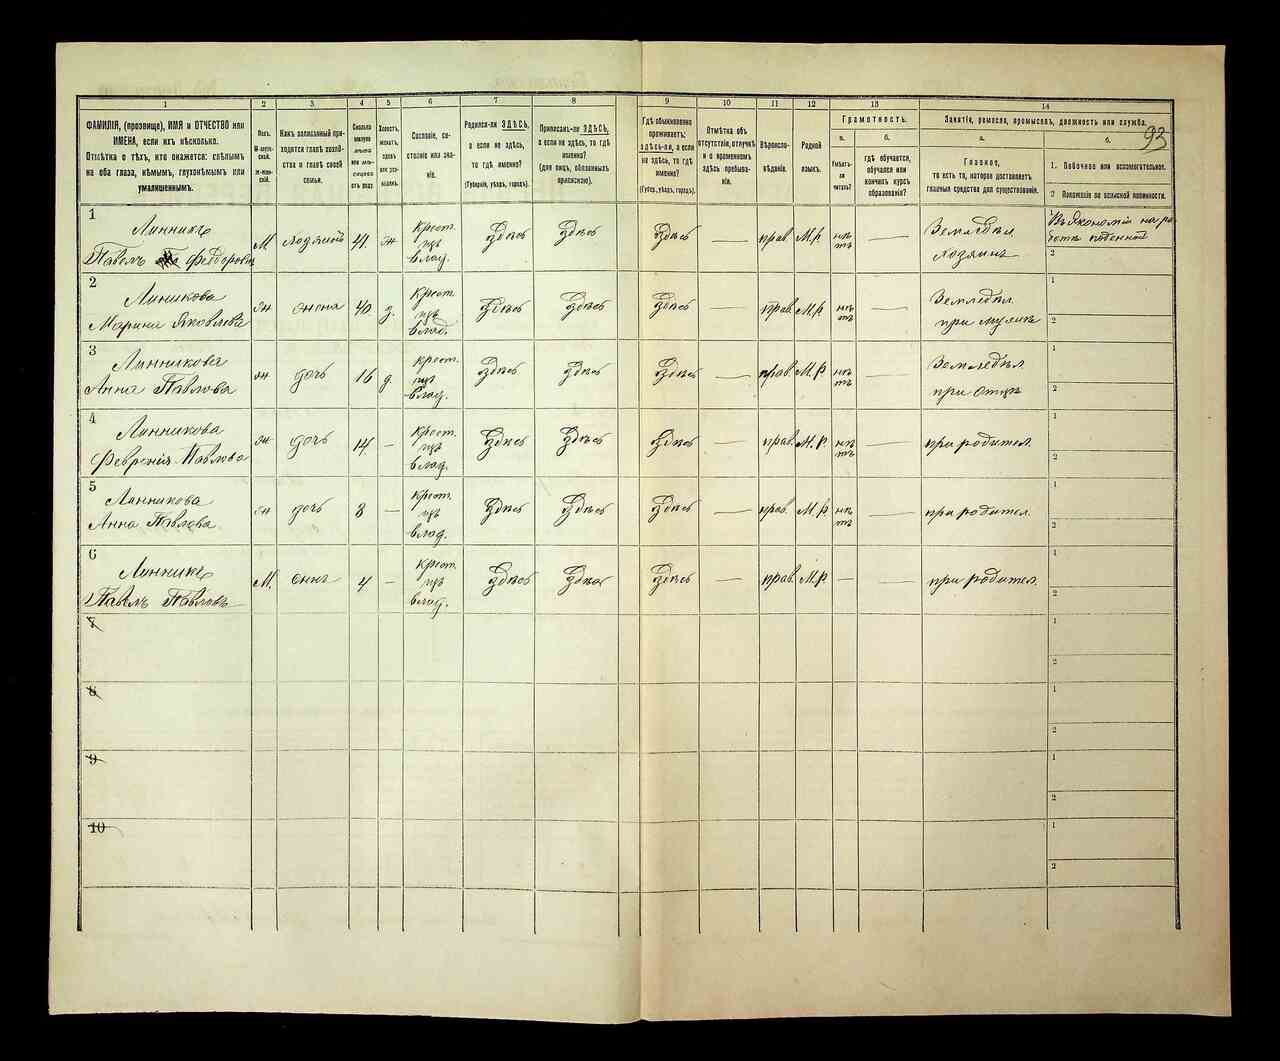 93
1 2 3 4 5 6 7 8 9 10 11 12 13 14
ФАМИЛІЯ, (прозвище), ИМЯ и ОТЧЕСТВО или
ИМЕНА, если ихъ нѣсколько.
Отмѣтка о тѣхъ, кто окажется: слѣпымъ
на оба глаза, нѣмымъ, глухонѣмымъ или
умалишеннымъ.
Полъ.
М-мужской.
Ж-женскій.
Какъ записанный приходится главѣ хозяйства и главѣ своей
семьи.
Сколько
минуло
лѣтъ
или мѣсяцевъ
отъ роду.
Холостъ,
женатъ,
вдовъ
или разведенъ.
Сословіе, состояніе или званіе.
Родился-ли ЗДѢСЬ,
а если не здѣсь,
то гдѣ именно?
(Губернія, уѣздъ, городъ).
Приписанъ-ли ЗДѢСЬ,
а если не здѣсь, то гдѣ
именно?
(для лицъ, обязанныхъ
припискою).
Гдѣ обыкновенно
проживаетъ:
здѣсь-ли, а если
не здѣсь, то гдѣ
именно?
(Губер., уѣздъ, городъ).
Отмѣтка объ
отсутствіи, отлучкѣ
и о временномъ
здѣсь пребываніи.
Вѣроисповѣданіе.
Родной
языкъ.
Грамотность.
а.
Умѣетъ-ли
читать?
б.
гдѣ обучается,
обучался или
кончилъ курсъ
образованія?
Занятіе, ремесло, промыселъ, должность или служба.
а.
Главное,
то есть то, которое доставляетъ
главныя средства для существованія.
б.
1. Побочное или вспомогательное.
2 Положеніе по воинской повинности.
1
Линникъ
Павелъ Федоровъ
М хозяинъ 41 ж Крест. изъ влад. Здѣсь Здѣсь Здѣсь — прав М.Р нѣтъ — Земледѣл хозяинъ
2
2
Линикова
Марина Яковлева
жн жена 40 з. Крест. изъ влад. Здѣсь Здѣсь Здѣсь — прав. М.Р нѣтъ — Земледѣл. при мужѣ
1
2
3
Линникова
Анна Павлова
жн дочь 16 д. Крест. изъ влад. Здѣсь Здѣсь Здѣсь — прав. М.Р нѣтъ — Земледѣл при отцѣ
1
2
4
Линникова
Февронія Павлова
жн дочь 14 — Крест. изъ влад. Здѣсь Здѣсь Здѣсь — прав. М.Р нѣтъ — при родител.
1
2
5
Линникова
Анна Павлова
жн дочь 8 — Крест. изъ влад. Здѣсь Здѣсь Здѣсь — прав. М.Р нѣтъ — при родител.
1
2
6
Линникъ
Павелъ Павловъ
М. сынъ 4 — Крест. изъ влад. Здѣсь Здѣсь Здѣсь — прав. М.Р — — при родител.
1
2
7
1
2
8
1
2
9
1
2
10
1
2